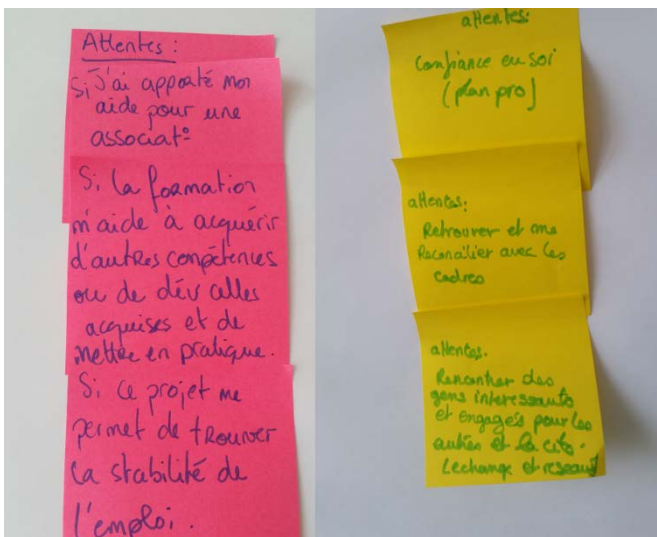 Attentes :
Si J'ai apporté mon
aide pour une
associat°
Si la formation
m'aide à acquérir
d'autres compétences
ou de dév celles
acquises et de
mettre en pratique.
Si ce projet me
permet de trouver
la stabilité de
l'emploi.
attentes:
Confiance en soi
(plan pro)
attentes:
Retrouver et me
Reconcilier avec les
cadres
attentes.
Rencontrer des
gens interessants
et engagés pour les
autres et la cité.
L'echange et reseau